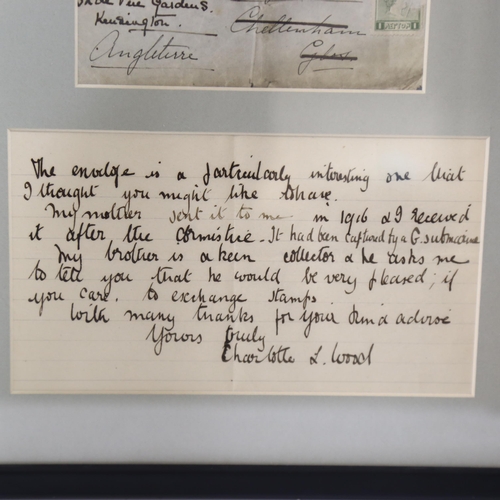 De Vere Gardens.
Kensington.
Angleterre
Cheltenham
Glos
1
1
The envelope is a particularly interesting one that
I thought you might like to have.
My mother sent it to me in 1916 & I received
it after the Armistice. It had been captured by a G. submarine
My brother is a keen collector & he asks me
to tell you that he would be very pleased; if
you care, to exchange stamps
With many thanks for your kind advice
Yours truly
Charlotte L. Wood